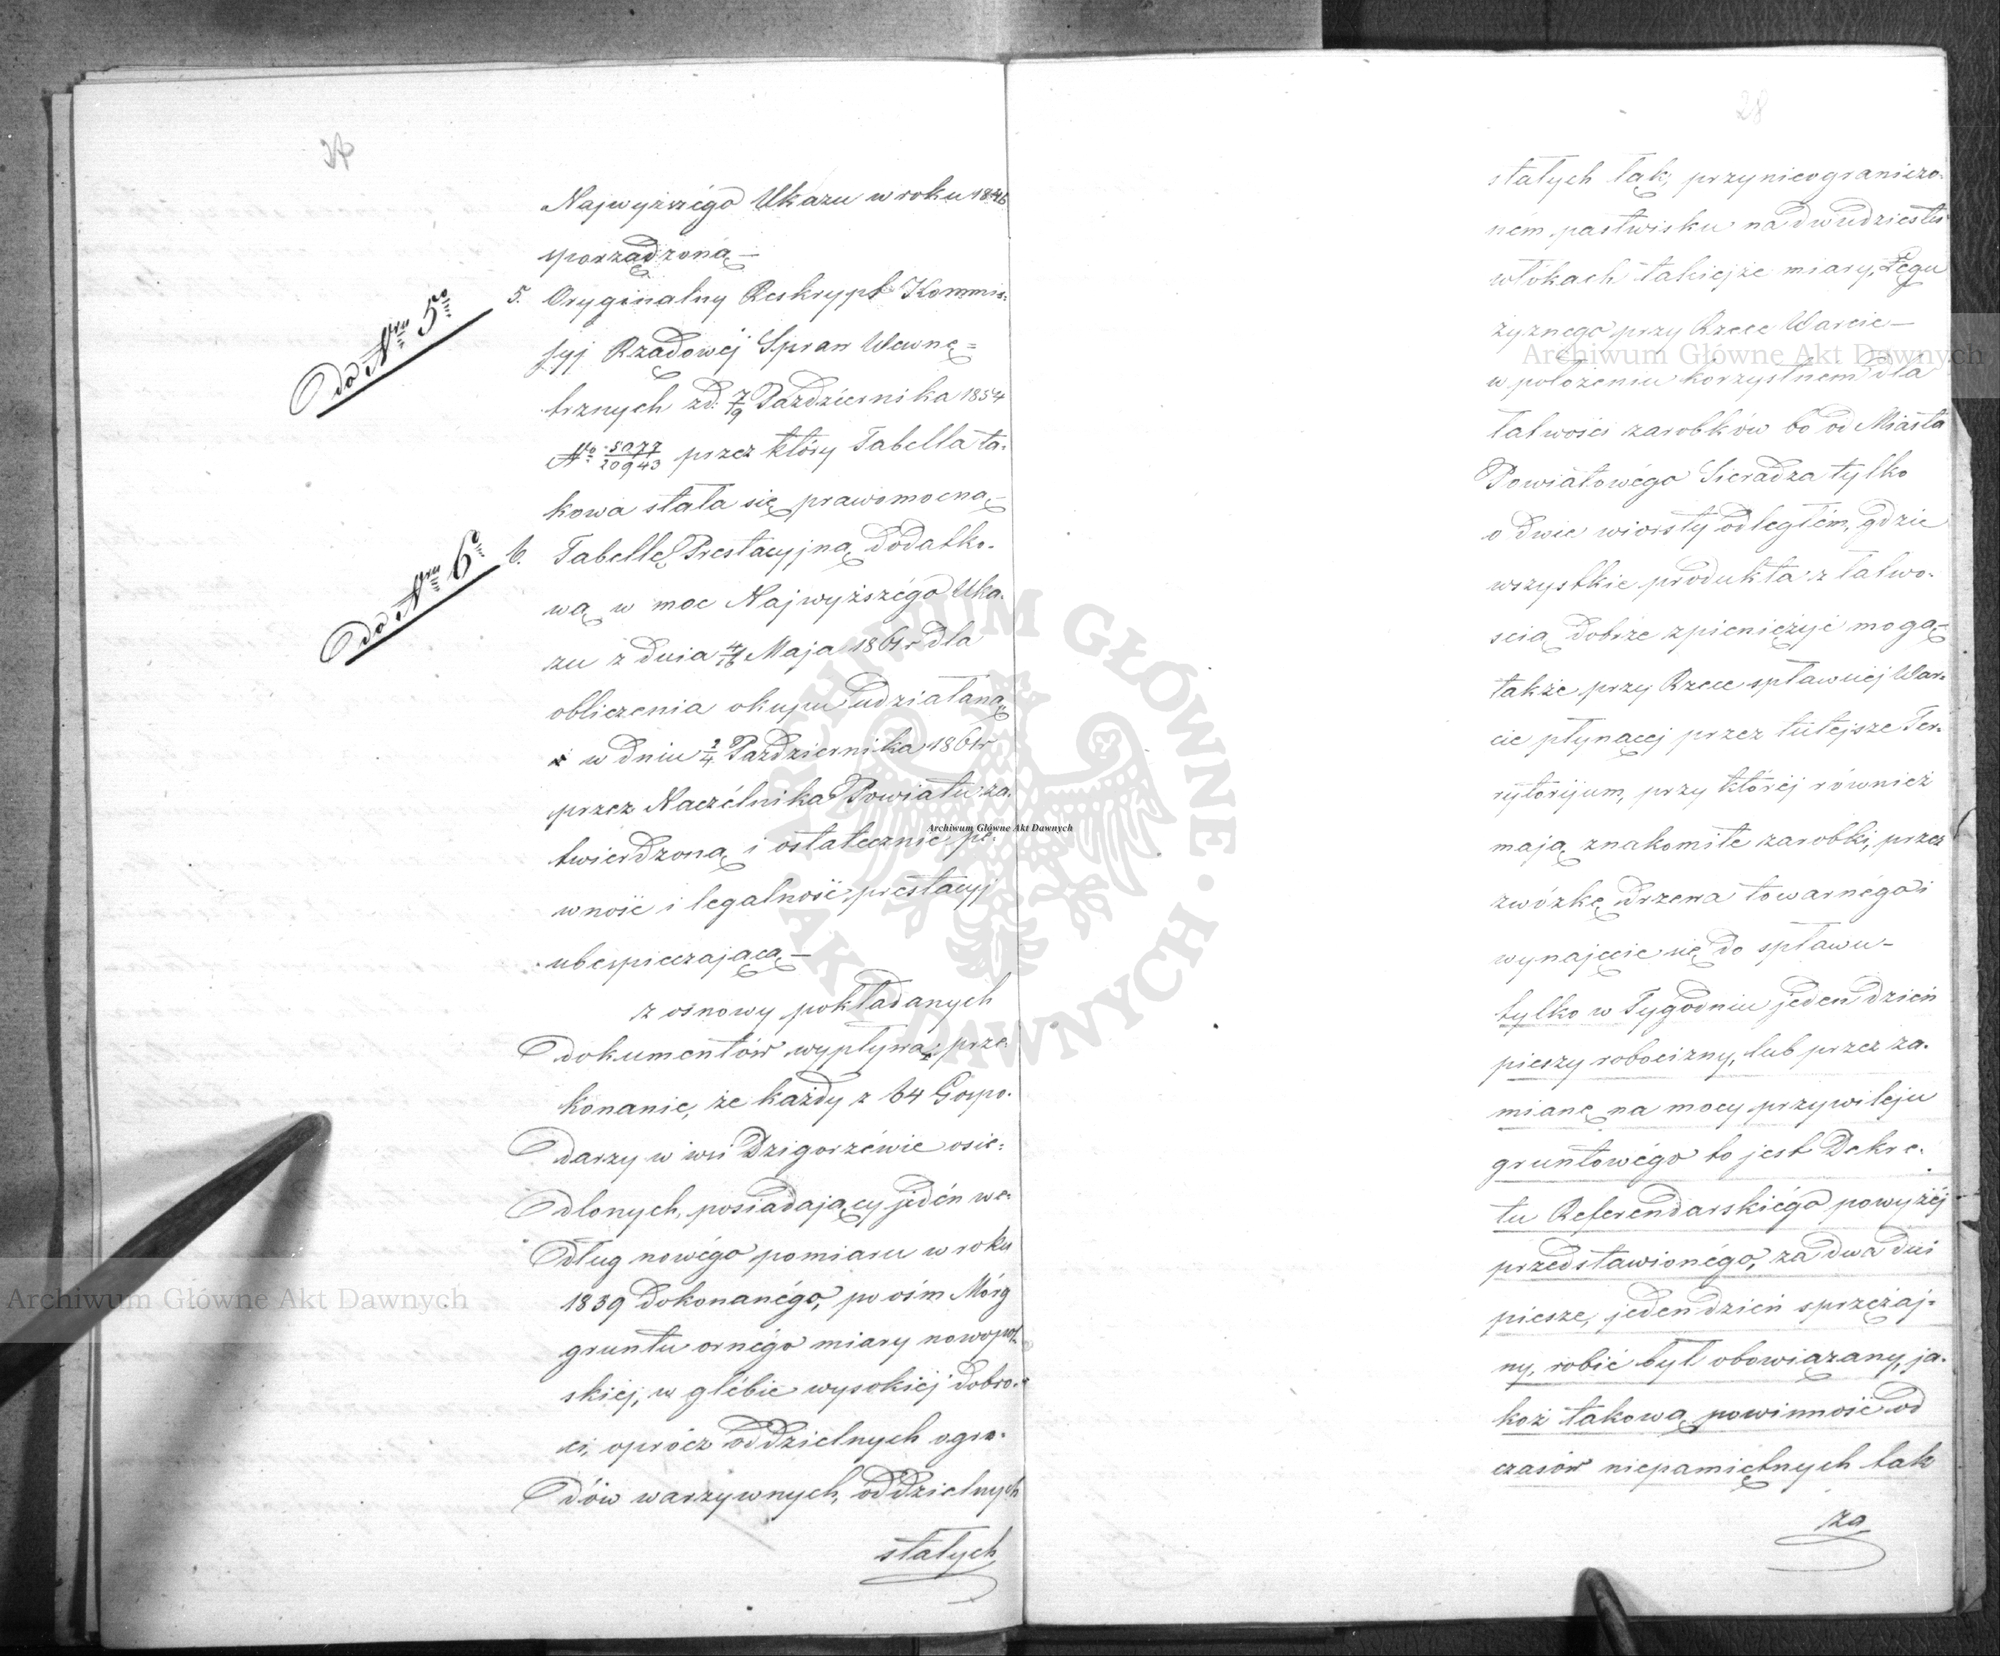 Najwyższégo Ukazu w roku 1846
sporządzoną —
do Nru 5o
5. Oryginalny Reskrypt Kommis:
syj Rządowéj Spraw Wewnę=
trznych z d: 7/19 Października 1854
No 5077/20943 przez który Tabella ta-
kowa stała się prawomocną —
do Nru 6o
6. Tabellę Prestacyjną dodatko-
wą w moc Najwyższégo Uka-
zu z dnia 4/16 Maja 1861 r dla
obliczenia okupu udziałaną
i w dniu 2/4 Października 1861 r
przez Naczélnika Powiatu za-
twierdzoną i ostatecznie pe-
wność i legalność prestacyj
ubespieczającą —
z osnowy pokładanych
dokumentów wypływa prze-
konanie, że każdy z 64 Gospo-
darzy w wsi Dzigorzéwie osie-
dlonych, posiadający jedén we-
dług nowégo pomiaru w roku
1839 dokonanégo, po ośm Mórg
gruntu ornégo miary nowopol-
skiéj, w glébie wysokiéj dobro-
ci, oprócz oddzielnych ogro-
dów warzywnych, oddzielnych
stałych
28
stałych łąk, przy nieograniczo-
ném pastwisku na dwudziestu
włokach takiejże miary, Łęgu
żyznego przy Rzece Warcie —
w położeniu korzystnem dla
łatwości zarobków bo od Miasta
Powiatowégo Sieradza tylko
o dwie wiorsty odległém, gdzie
wszystkie produkta z łatwo-
scią dobrze zpieniężyć mogą —
także przy Rzece spławnéj War-
cie płynącéj przez tutejsze Ter-
rytorijum, przy któréj również
mają znakomite zarobki, przez
zwózkę drzewa towarnégo i
wynajęcie się do spławu —
tylko w Tygodniu jeden dzień
pieszy robocizny, lub przez za-
mianę na mocy przywileju
gruntowégo to jest Dekre-
tu Referendarskiégo powyżéj
przedstawionégo, za dwa dni
piesze, jeden dzień sprzężaj-
ny, robić był obowiązany, ja-
koż takową powinność od
czasów niepamiętnych tak
za
Archiwum Główne Akt Dawnych
Archiwum Główne Akt Dawnych
Archiwum Główne Akt Dawnych
ARCHIWUM GŁÓWNE · AKT DAWNYCH ·